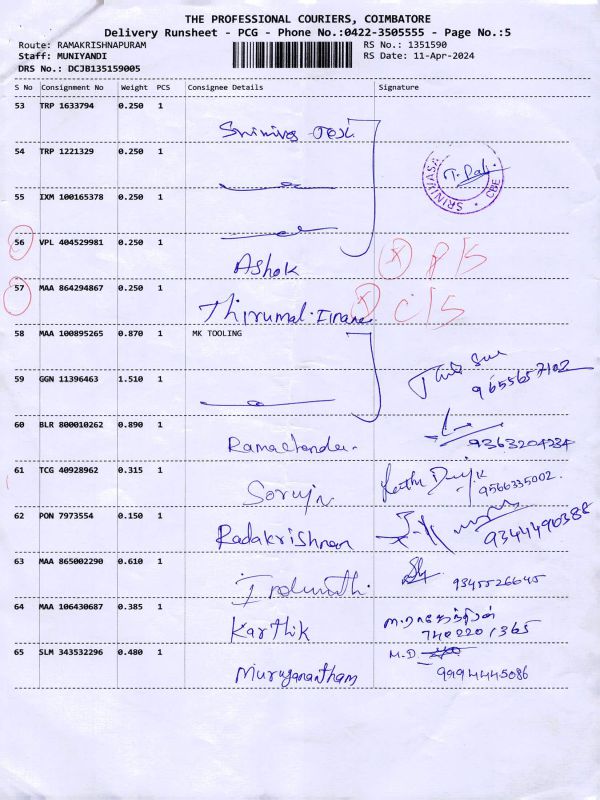 THE PROFESSIONAL COURIERS, COIMBATORE
Delivery Runsheet - PCG - Phone No.:0422-3505555 - Page No.:5
Route: RAMAKRISHNAPURAM RS No.: 1351590
Staff: MUNIYANDI RS Date: 11-Apr-2024
DRS No.: DCJB135159005
S No Consignment No Weight PCS Consignee Details Signature
53 TRP 1633794 0.250 1
54 TRP 1221329 0.250 1
SRINIVASA CBE
55 IXM 100165378 0.250 1
56 VPL 404529981 0.250 1
Ashok
57 MAA 864294867 0.250 1
Thirumal.
58 MAA 100895265 0.870 1 MK TOOLING
59 GGN 11396463 1.510 1
9655657102
60 BLR 800010262 0.890 1
9363204234
61 TCG 40928962 0.315 1
9566335002.
62 PON 7973554 0.150 1
Radakrishnan 9344490388
63 MAA 865002290 0.610 1
9345526645
64 MAA 106430687 0.385 1
Karthik 7402201365
65 SLM 343532296 0.480 1 M.D
Muruganantham 9994445086